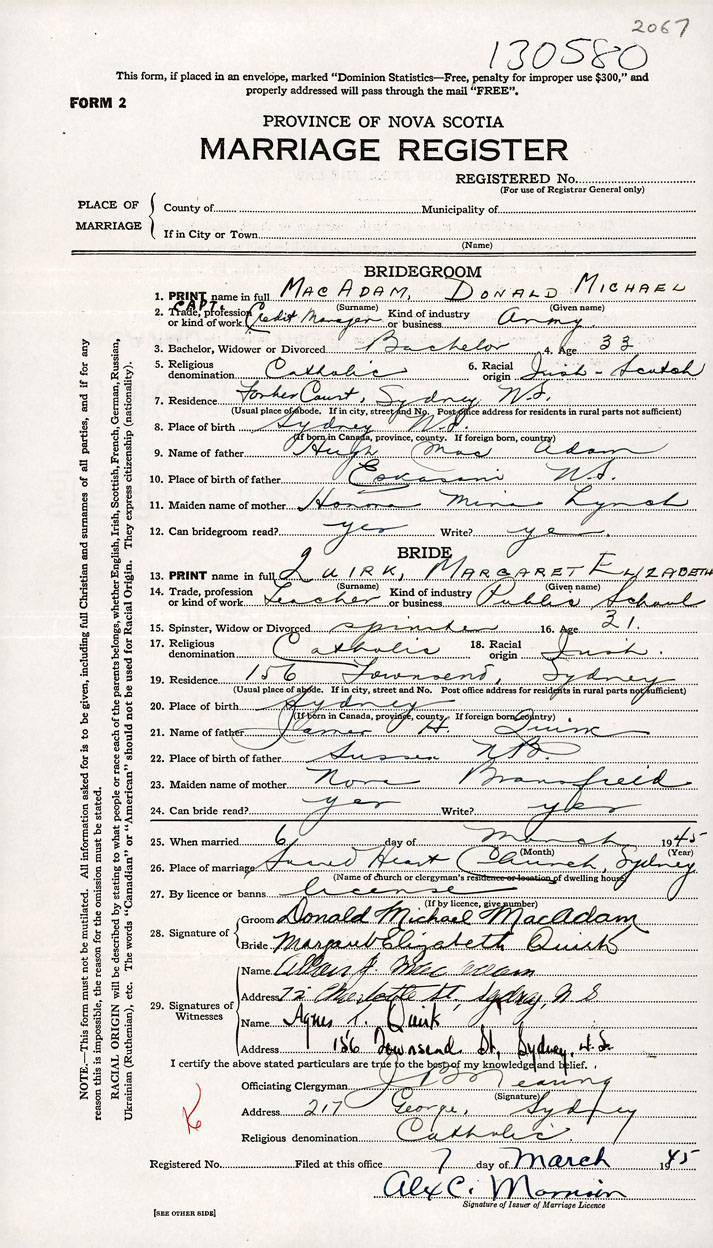 2067
130580
This form, if placed in an envelope, marked "Dominion Statistics—Free, penalty for improper use $300," and
properly addressed will pass through the mail "FREE".
FORM 2
PROVINCE OF NOVA SCOTIA
MARRIAGE REGISTER
REGISTERED No.
(For use of Registrar General only)
PLACE OF MARRIAGE
County of Municipality of
If in City or Town
(Name)
BRIDEGROOM
1. PRINT name in full MACADAM, DONALD MICHAEL
(Surname) (Given name)
CAPT.
2. Trade, profession or kind of work Credit Manager Kind of industry or business Army
3. Bachelor, Widower or Divorced Bachelor 4. Age 33
5. Religious denomination Catholic 6. Racial origin Irish - Scotch
7. Residence Court, Sydney N.S.
(Usual place of abode. If in city, street and No. Post office address for residents in rural parts not sufficient)
8. Place of birth Sydney N.S.
(If born in Canada, province, county. If foreign born, country)
9. Name of father Hugh Mac Adam
10. Place of birth of father Eskasoni N.S.
11. Maiden name of mother Mina Lynch
12. Can bridegroom read? yes Write? yes.
BRIDE
13. PRINT name in full QUIRK, MARGARET ELIZABETH
(Surname) (Given name)
14. Trade, profession or kind of work Teacher Kind of industry or business Public School
15. Spinster, Widow or Divorced spinster 16. Age 31.
17. Religious denomination Catholic 18. Racial origin Irish.
19. Residence 156 Townsend, Sydney
(Usual place of abode. If in city, street and No. Post office address for residents in rural parts not sufficient)
20. Place of birth Sydney
(If born in Canada, province, county. If foreign born, country)
21. Name of father James H. Quirk
22. Place of birth of father Sussex N.B.
23. Maiden name of mother Nora Bransfield
24. Can bride read? yes Write? yes
25. When married 6 day of March 1945
(Month) (Year)
26. Place of marriage Sacred Heart Church, Sydney
(Name of church or clergyman's residence or location of dwelling house)
27. By licence or banns license
(If by licence, give number)
28. Signature of
Groom Donald Michael MacAdam
Bride Margaret Elizabeth Quirk
29. Signatures of Witnesses
Name Allan J. MacAdam
Address 72 Charlotte St, Sydney, N.S
Name Agnes T. Quirk
Address 156 Townsend St, Sydney, N.S.
I certify the above stated particulars are true to the best of my knowledge and belief.
Officiating Clergyman
(Signature)
Address 217 George, Sydney
Religious denomination Catholic.
Registered No. Filed at this office 7 day of March 1945
Alex C. Morrison
Signature of Issuer of Marriage Licence
[SEE OTHER SIDE]
NOTE.—This form must not be mutilated. All information asked for is to be given, including full Christian and surnames of all parties, and if for any
reason this is impossible, the reason for the omission must be stated.
RACIAL ORIGIN will be described by stating to what people or race each of the parents belongs, whether English, Irish, Scottish, French, German, Russian,
Ukrainian (Ruthenian), etc. The words "Canadian" or "American" should not be used for Racial Origin. They express citizenship (nationality).